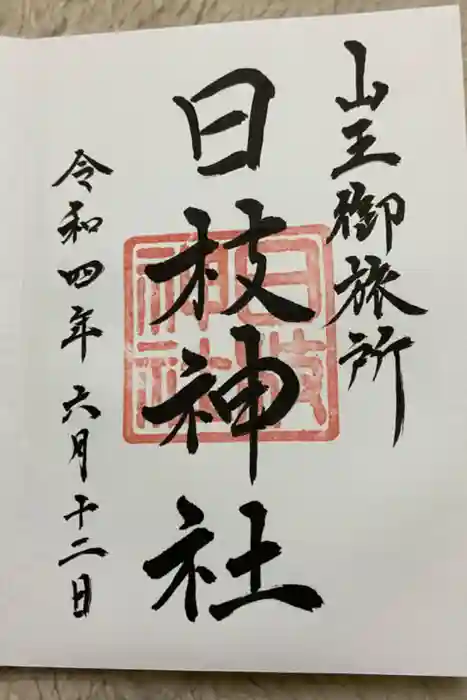 山王御旅所
日枝神社
日枝神社
令和四年六月十二日